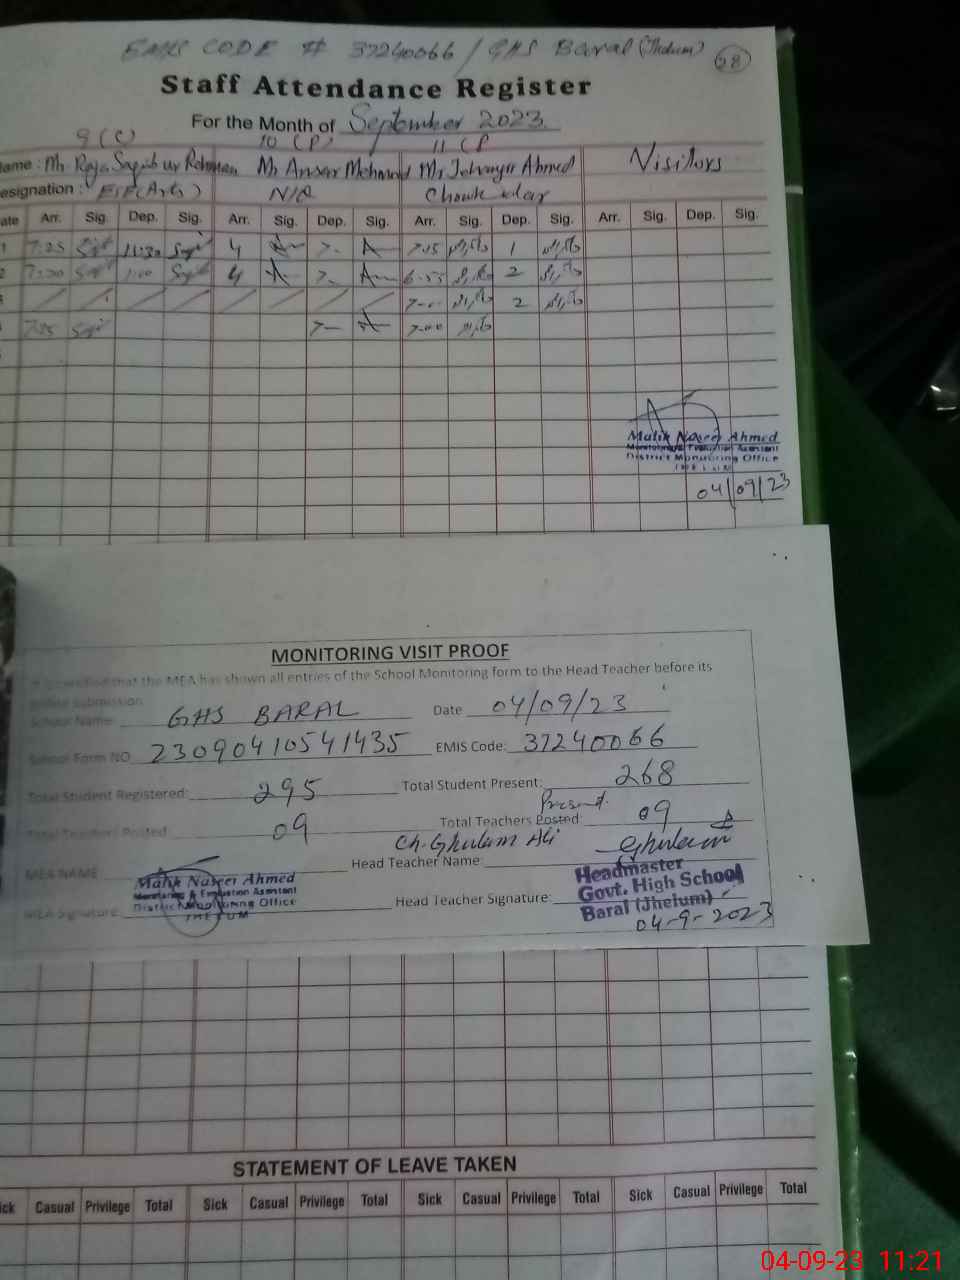 EMIS CODE # 37240066 / GHS Baral (Jhelum) 28
Staff Attendance Register
For the Month of September 2023
9 (C) 10 (P) 11 (P
ame : Mr Raja Saqib ur Rehman Mr Ansar Mehmood Mr Jehangir Ahmed Visitors
esignation : EST (Arts) N/Q Chowkidar
ate Arr. Sig. Dep. Sig. Arr. Sig. Dep. Sig. Arr. Sig. Dep. Sig. Arr. Sig. Dep. Sig.
1 7:25 11:30 4 7- 7-15 1
2 7:30 1:00 4 7- 6-55 2
7-00 2
7:25 7- 7-00
Malik Naseer Ahmed
Monitoring & Evaluation Assistant
District Monitoring Office
JHELUM
04/09/23
MONITORING VISIT PROOF
It is certified that the MEA has shown all entries of the School Monitoring form to the Head Teacher before its
online submission
School Name: GHS BARAL Date 04/09/23
School Form NO 23090410541435 EMIS Code: 37240066
Total Student Registered: 295 Total Student Present: 268
Present
Total Teachers Posted: 09 Total Teachers Posted: 09
MEA NAME Head Teacher Name: Ch. Ghulam Ali Ghulam
Malik Naseer Ahmed
Monitoring & Evaluation Assistant
District Monitoring Office
JHELUM
MEA Signature: Head Teacher Signature:
Headmaster
Govt. High School
Baral (Jhelum)
04-9-2023
STATEMENT OF LEAVE TAKEN
ick Casual Privilege Total Sick Casual Privilege Total Sick Casual Privilege Total Sick Casual Privilege Total
04-09-23 11:21